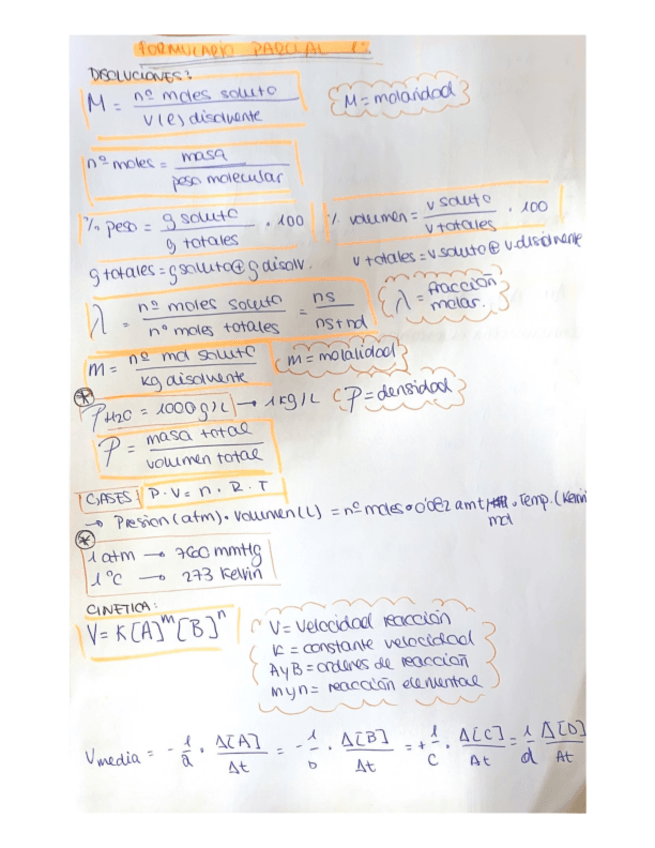 FORMULARIO PARCIAL 1º
DISOLUCIONES:
M = nº moles soluto / V(l) disolvente
M = molaridad
nº moles = masa / peso molecular
% peso = g soluto / g totales · 100
% volumen = v soluto / v totales · 100
g totales = g soluto ⊕ g disolv.
v totales = v soluto ⊕ v. disolvente
λ = nº moles soluto / nº moles totales = ns / ns+nd
λ = fracción molar.
m = nº mol soluto / kg disolvente
m = molalidad
* ρ H2O = 1000 g/L → 1 kg/L
ρ = densidad
ρ = masa total / volumen total
GASES: P · V = n · R · T
→ Presion (atm) · Volumen (L) = nº moles · 0'082 amt · Temp. (Kelvin
mol
* 1 atm → 760 mmHg
1 ºC → 273 Kelvin
CINETICA:
V = K[A]^m [B]^n
V = Velocidad reacción
K = constante velocidad
A y B = ordenes de reacción
m y n = reacción elemental
Vmedia = - 1/a · Δ[A]/Δt = - 1/b · Δ[B]/Δt = + 1/c · Δ[C]/Δt = 1/d Δ[D]/Δt